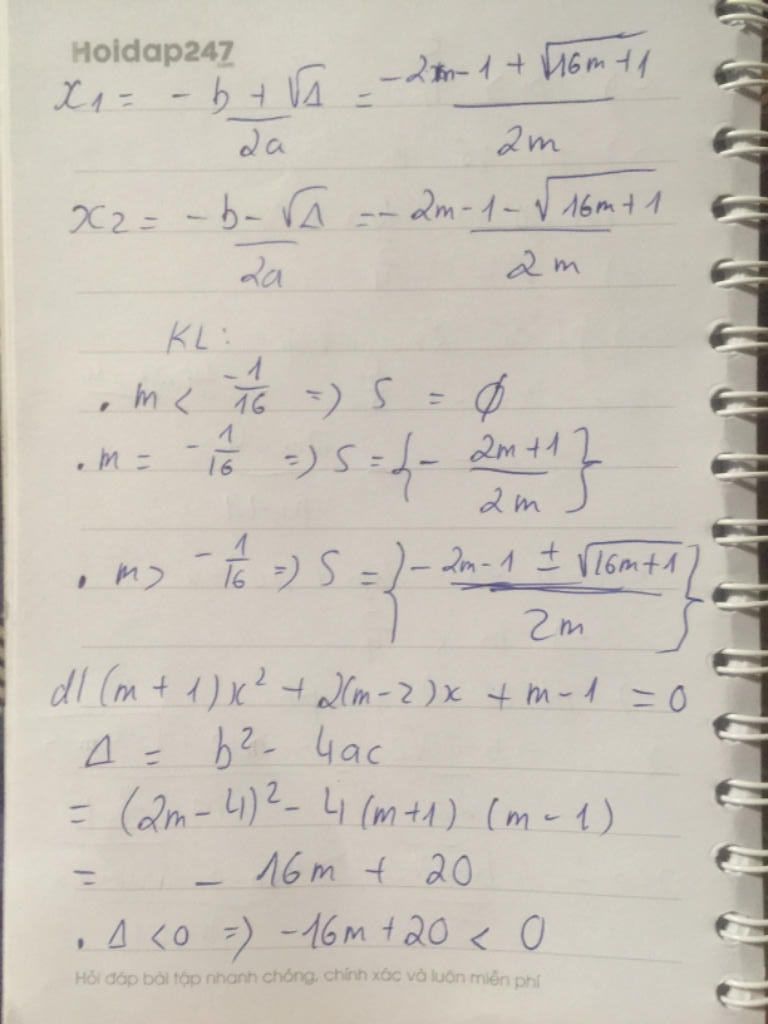 Hoidap247
x₁ = \frac{-b + √Δ}{2a} = \frac{-2m-1 + √{16m+1}}{2m}
x₂ = \frac{-b - √Δ}{2a} = \frac{-2m-1 - √{16m+1}}{2m}
KL:
. m < \frac{-1}{16} => S = ∅
. m = -\frac{1}{16} => S = {-\frac{2m+1}{2m}}
. m > -\frac{1}{16} => S = {\frac{-2m-1 ± √{16m+1}}{2m}}
d/ (m+1)x² + 2(m-2)x + m-1 = 0
Δ = b² - 4ac
= (2m-4)² - 4(m+1) (m-1)
= - 16m + 20
. Δ <0 => -16m+20 < 0
Hỏi đáp bài tập nhanh chóng, chính xác và luôn miễn phí